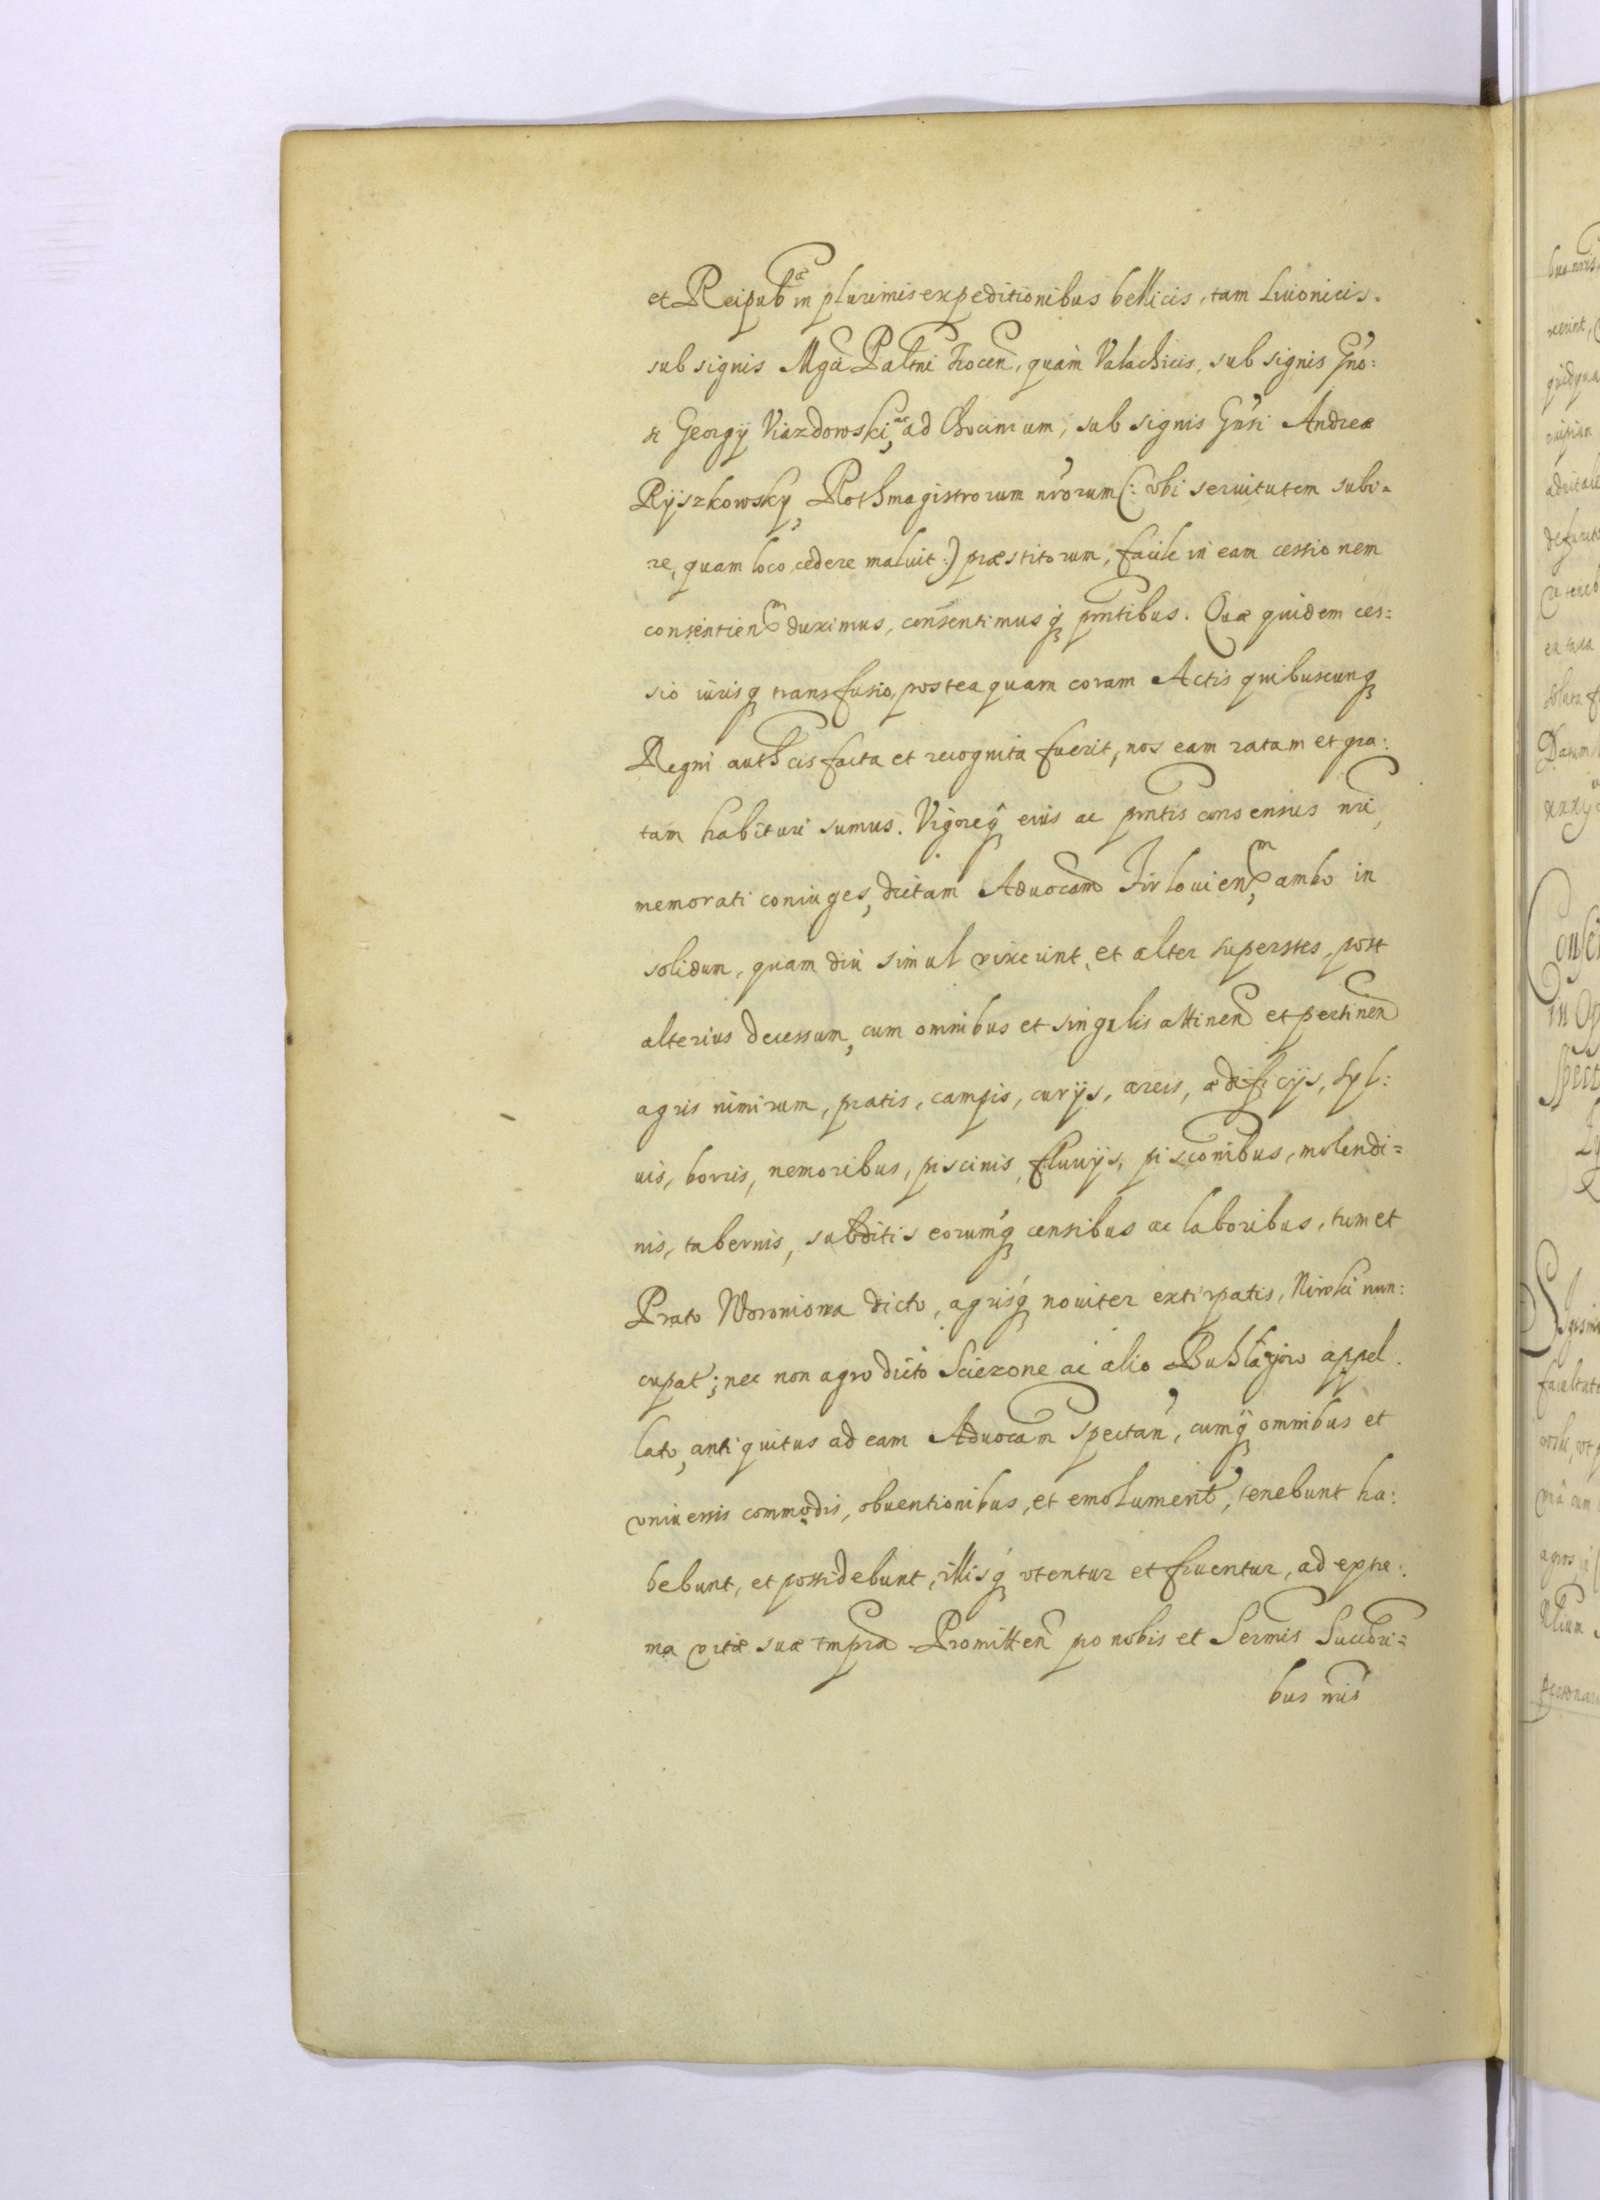 et Reipub^ae in plurimis expeditionibus bellicis, tam Liuonicis.
sub signis Mgci Paltni Trocen, quàm Valachicis, sub signis Gno:
si Georgÿ Viazdowski, ac ad Chocimum, sub signis Gnsi Andreæ
Rÿszkowskÿ, Rothmagistrorum nrorum (: vbi seruitutem subi-
re, quam loco cedere maluit :) præstitorum, facile in eam cessionem
consentien^m duximus, consentimusq̃ pntibus. Quæ quidem ces:
sio iurisq̃ transfusio, postea quam coram Actis quibuscunq̃
Regni authcis facta et recognita fuerit, nos eam ratam et gra:
tam habituri sumus. Vigoreq̃ eius ac pntis consensus nri,
memorati coniuges, dictam Aduocam Jirlouien^m, ambo in
solidum, quam diu simul vixerint, et alter superstes, post
alterius decessum, cum omnibus et singulis attinen et pertinen
agris nimirum, pratis, campis, curÿs, areis, ædificÿs, syl:
uis, borris, nemoribus, piscinis, fluuÿs, pisconibus, molendi=
nis, tabernis, subditis eorumq̃ censibus ac laboribus, tum et
Prato Woroniowa dicto, agrisq̃ nouiter extirpatis, Niwki nun:
cupat; nec non agro dicto Sciezone ac alio appel.
lato, antiquitus ad eam Aduocam spectan, cumq̃ omnibus et
vniuersis commodis, obuentionibus, et emolument, tenebunt ha:
bebunt, et possidebunt, illisq̃ vtentur et fruentur, ad extre:
ma vitæ suæ tmpra Promitten pro nobis et Sermis Succri=
bus nris